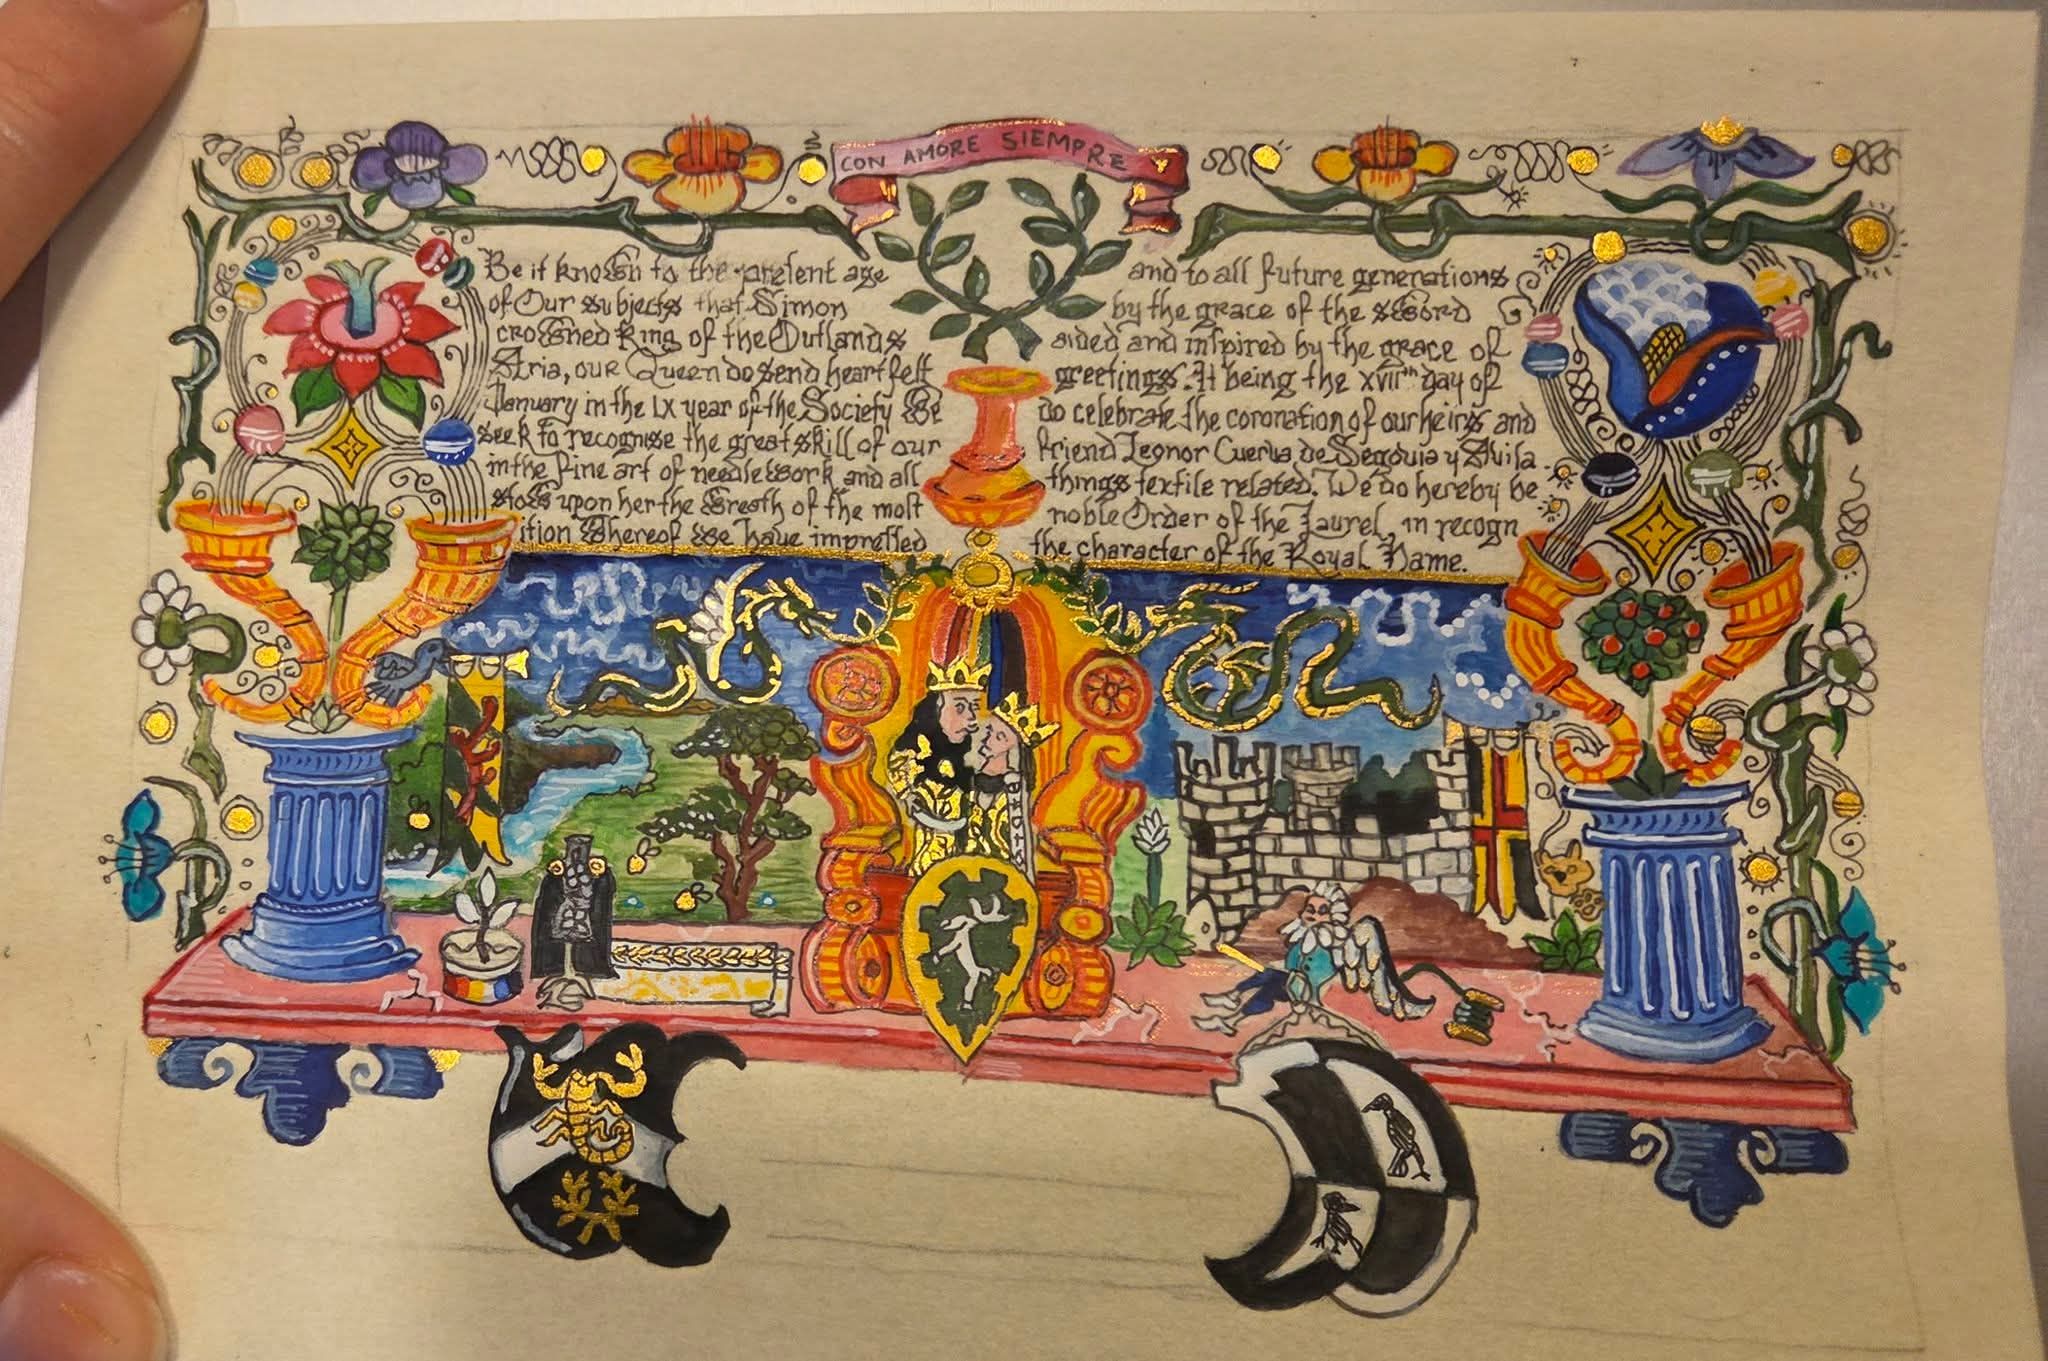 CON AMORE SIEMPRE
Be it known to the present age and to all future generations
of Our subjects that Simon by the grace of the sword
crowned King of the Outlands aided and inspired by the grace of
Aria, our Queen do send heartfelt greetings. It being the xviiᵗʰ day of
January in the LX year of the Society We do celebrate the coronation of our heirs and
seek to recognise the great skill of our friend Leonor Cuerva de Segovia y Avila
in the fine art of needlework and all things textile related. We do hereby be
stow upon her the Wreath of the most noble Order of the Laurel, in recogn
ition Whereof We have impressed the character of the Royal Name.